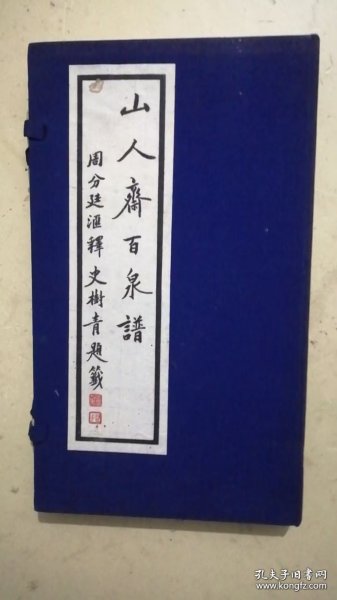 山人齋百泉譜
周分廷滙釋 史樹青題籤
孔夫子旧书网
www.kongfz.com